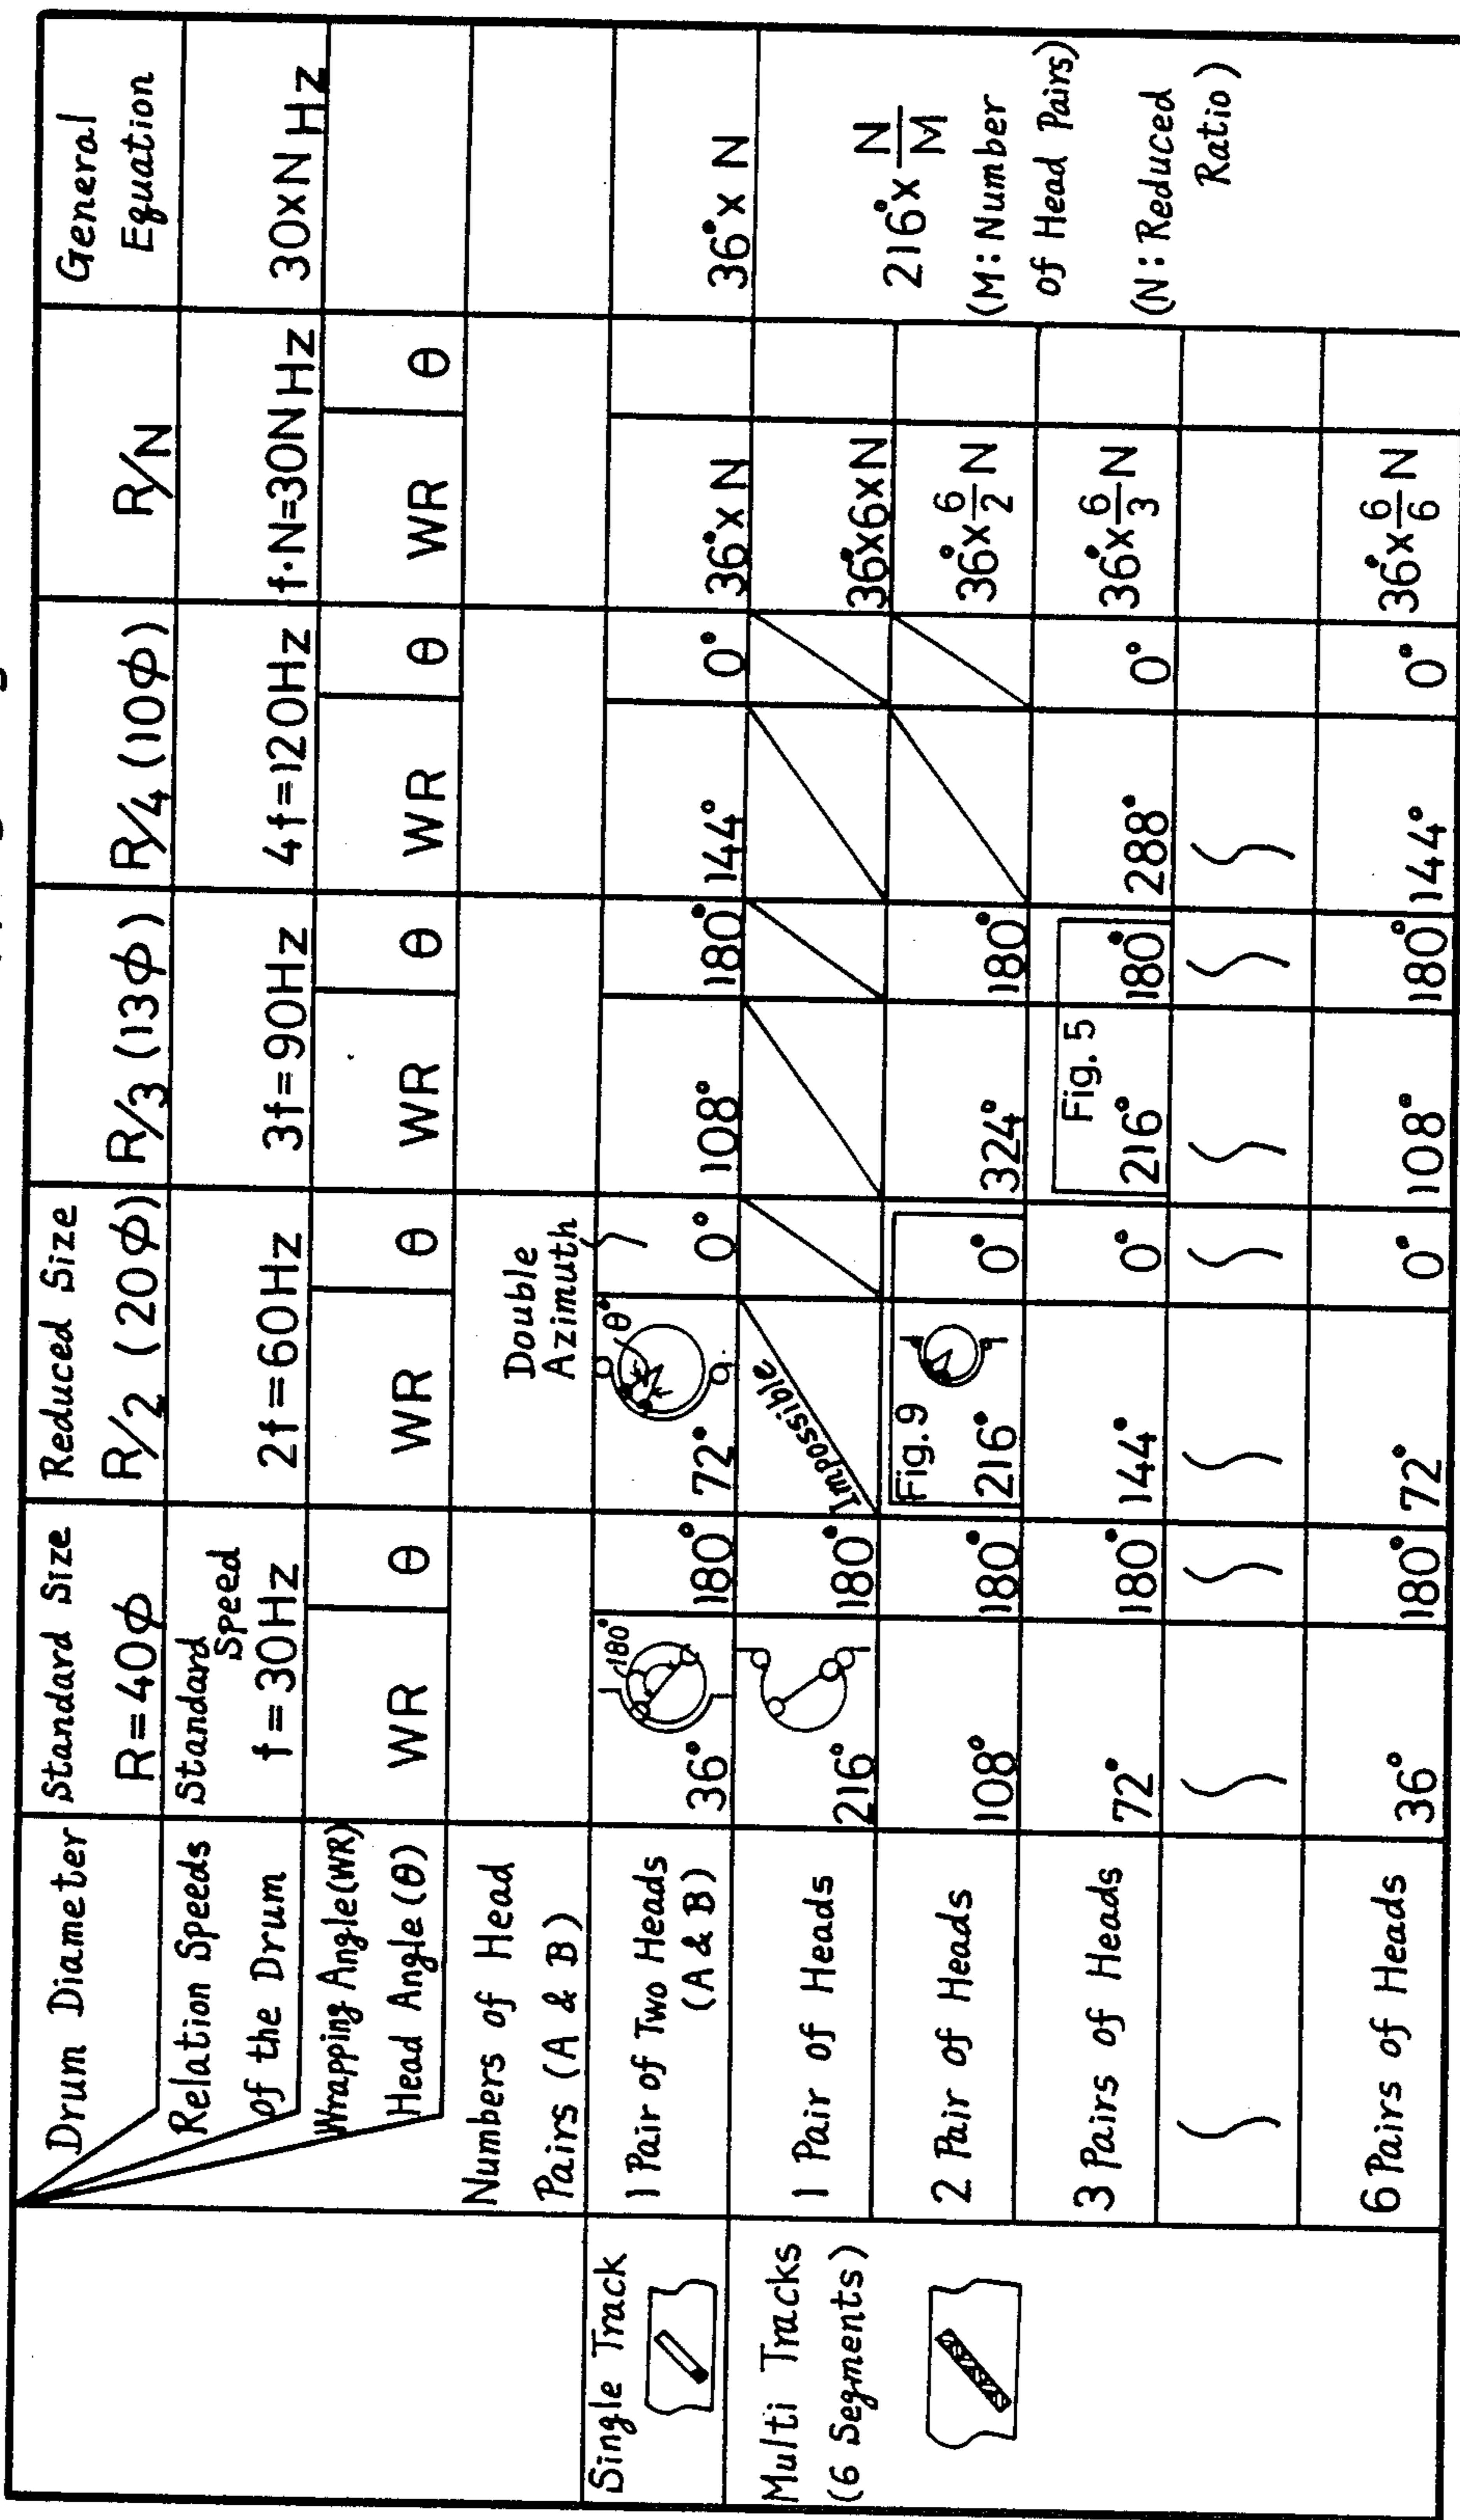 Drum Diameter
Standard Size
R=40φ
Reduced Size
R/2 (20φ)
R/3 (13φ)
R/4 (10φ)
R/N
General
Equation
Relation Speeds
of the Drum
Standard
Speed
f=30Hz
2f=60Hz
3f=90Hz
4f=120Hz
f·N=30NHz
30×N Hz
Wrapping Angle(WR)
Head Angle(θ)
WR θ WR θ WR θ WR θ WR θ
Numbers of Head
Pairs (A & B)
Double
Azimuth
Single Track
1 Pair of Two Heads
(A & B)
36° 180° 180° 72° θ° 0° 108° 180° 144° 0° 36°×N 36°×N
Multi Tracks
(6 Segments)
1 Pair of Heads
216° 180° Impossible 36°×6×N
216°× N/M
(M: Number
of Head Pairs)
(N: Reduced
Ratio)
2 Pair of Heads
108° 180° Fig. 9 216° 0° 324° 180° 36°× 6/2 N
3 Pairs of Heads
72° 180° 144° 0° Fig. 5 216° 180° 288° 0° 36°× 6/3 N
6 Pairs of Heads
36° 180° 72° 0° 108° 180° 144° 0° 36°× 6/6 N